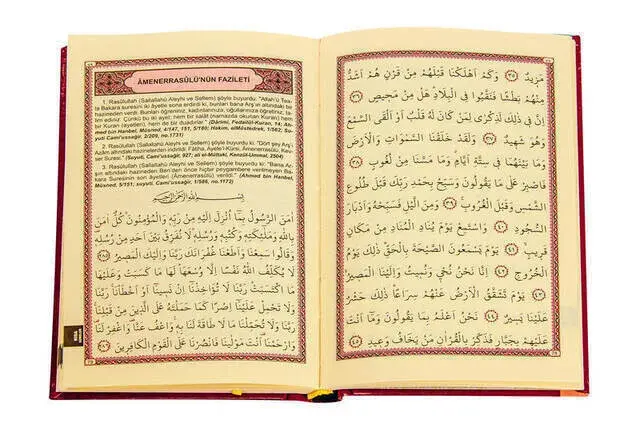 مَزِيدٌ ﴿٣٥﴾ وَكَمْ اَهْلَكْنَا قَبْلَهُمْ مِنْ قَرْنٍ هُمْ اَشَدُّ
مِنْهُمْ بَطْشًا فَنَقَّبُوا فِي الْبِلَادِ هَلْ مِنْ مَحِيصٍ
﴿٣٦﴾ اِنَّ فِي ذٰلِكَ لَذِكْرٰى لِمَنْ كَانَ لَهُ قَلْبٌ اَوْ اَلْقَى السَّمْعَ
وَهُوَ شَهِيدٌ ﴿٣٧﴾ وَلَقَدْ خَلَقْنَا السَّمٰوَاتِ وَالْاَرْضَ
وَمَا بَيْنَهُمَا فِي سِتَّةِ اَيَّامٍ وَمَا مَسَّنَا مِنْ لُغُوبٍ ﴿٣٨﴾
فَاصْبِرْ عَلٰى مَا يَقُولُونَ وَسَبِّحْ بِحَمْدِ رَبِّكَ قَبْلَ طُلُوعِ
الشَّمْسِ وَقَبْلَ الْغُرُوبِ ﴿٣٩﴾ وَمِنَ الَّيْلِ فَسَبِّحْهُ وَاَدْبَارَ
السُّجُودِ ﴿٤٠﴾ وَاسْتَمِعْ يَوْمَ يُنَادِ الْمُنَادِ مِنْ مَكَانٍ
قَرِيبٍ ﴿٤١﴾ يَوْمَ يَسْمَعُونَ الصَّيْحَةَ بِالْحَقِّ ذٰلِكَ يَوْمُ
الْخُرُوجِ ﴿٤٢﴾ اِنَّا نَحْنُ نُحْيِي وَنُمِيتُ وَاِلَيْنَا الْمَصِيرُ
﴿٤٣﴾ يَوْمَ تَشَقَّقُ الْاَرْضُ عَنْهُمْ سِرَاعًا ذٰلِكَ حَشْرٌ
عَلَيْنَا يَسِيرٌ ﴿٤٤﴾ نَحْنُ اَعْلَمُ بِمَا يَقُولُونَ وَمَا اَنْتَ
عَلَيْهِمْ بِجَبَّارٍ فَذَكِّرْ بِالْقُرْاٰنِ مَنْ يَخَافُ وَعِيدِ ﴿٤٥﴾
ÂMENERRASÛLÜ'NÜN FAZİLETİ
1. Rasûlullah (Sallallahü Aleyhi ve Sellem) şöyle buyurdu: "Allah'ü Tea-
la Bakara suresini iki âyetle sona erdirdi ki, bunları bana Arş'ın altındaki bir
hazineden verdi. Bunları öğreniniz, kadınlarınıza ve çocuklarınıza öğretiniz, ta-
lim ediniz. Çünkü bu iki âyet; hem bir salât (namazda okunan Kuran) hem
bir Kuran (ayetleri), hem de bir duâdırlar." (Dârimi, Fedâilü-Kuran, 14; Ah-
med bin Hanbel, Müsned, 4/147, 151, 5/180; Hakim, elMüstedrek, 1/562; Su-
yuti Cami'ussağir, 2/209, no.1731)
2. Rasûlullah (Sallallahü Aleyhi ve Sellem) şöyle buyurdu ki: "Dört şey Arş'ı
Azâm altındaki hazinelerden indirildi. Fâtiha, Ayete'l-Kürsi, Âmenerrasulü, Kev-
ser Suresi." (Suyuti, Cami'ussağir, 927; ali el-Müttaki, Kenzül-Ummal, 2504)
3. Rasûlullah (Sallallahü Aleyhi ve Sellem) şöyle buyurdu ki: "Bana Ar-
şın altındaki hazineden Ben'den önce hiçbir peygambere verilmeyen Ba-
kara Suresinin son âyetleri (Âmenerrasulü) verildi." (Ahmed bin Hanbel,
Müsned, 5/151; suyuti, Cami'ussağir, 1/566, no.1172)
بِسْمِ اللّٰهِ الرَّحْمٰنِ الرَّحِيمِ
اٰمَنَ الرَّسُولُ بِمَا اُنْزِلَ اِلَيْهِ مِنْ رَبِّهِ وَالْمُؤْمِنُونَ كُلٌّ اٰمَنَ
بِاللّٰهِ وَمَلٰئِكَتِهِ وَكُتُبِهِ وَرُسُلِهِ لَا نُفَرِّقُ بَيْنَ اَحَدٍ مِنْ رُسُلِهِ
وَقَالُوا سَمِعْنَا وَاَطَعْنَا غُفْرَانَكَ رَبَّنَا وَاِلَيْكَ الْمَصِيرُ ﴿٢٨٥﴾
لَا يُكَلِّفُ اللّٰهُ نَفْسًا اِلَّا وُسْعَهَا لَهَا مَا كَسَبَتْ وَعَلَيْهَا
مَا اكْتَسَبَتْ رَبَّنَا لَا تُؤَاخِذْنَا اِنْ نَسِينَا اَوْ اَخْطَاْنَا رَبَّنَا
وَلَا تَحْمِلْ عَلَيْنَا اِصْرًا كَمَا حَمَلْتَهُ عَلَى الَّذِينَ مِنْ قَبْلِنَا
رَبَّنَا وَلَا تُحَمِّلْنَا مَا لَا طَاقَةَ لَنَا بِهِ وَاعْفُ عَنَّا وَاغْفِرْ لَنَا
وَارْحَمْنَا اَنْتَ مَوْلٰينَا فَانْصُرْنَا عَلَى الْقَوْمِ الْكَافِرِينَ ﴿٢٨٦﴾